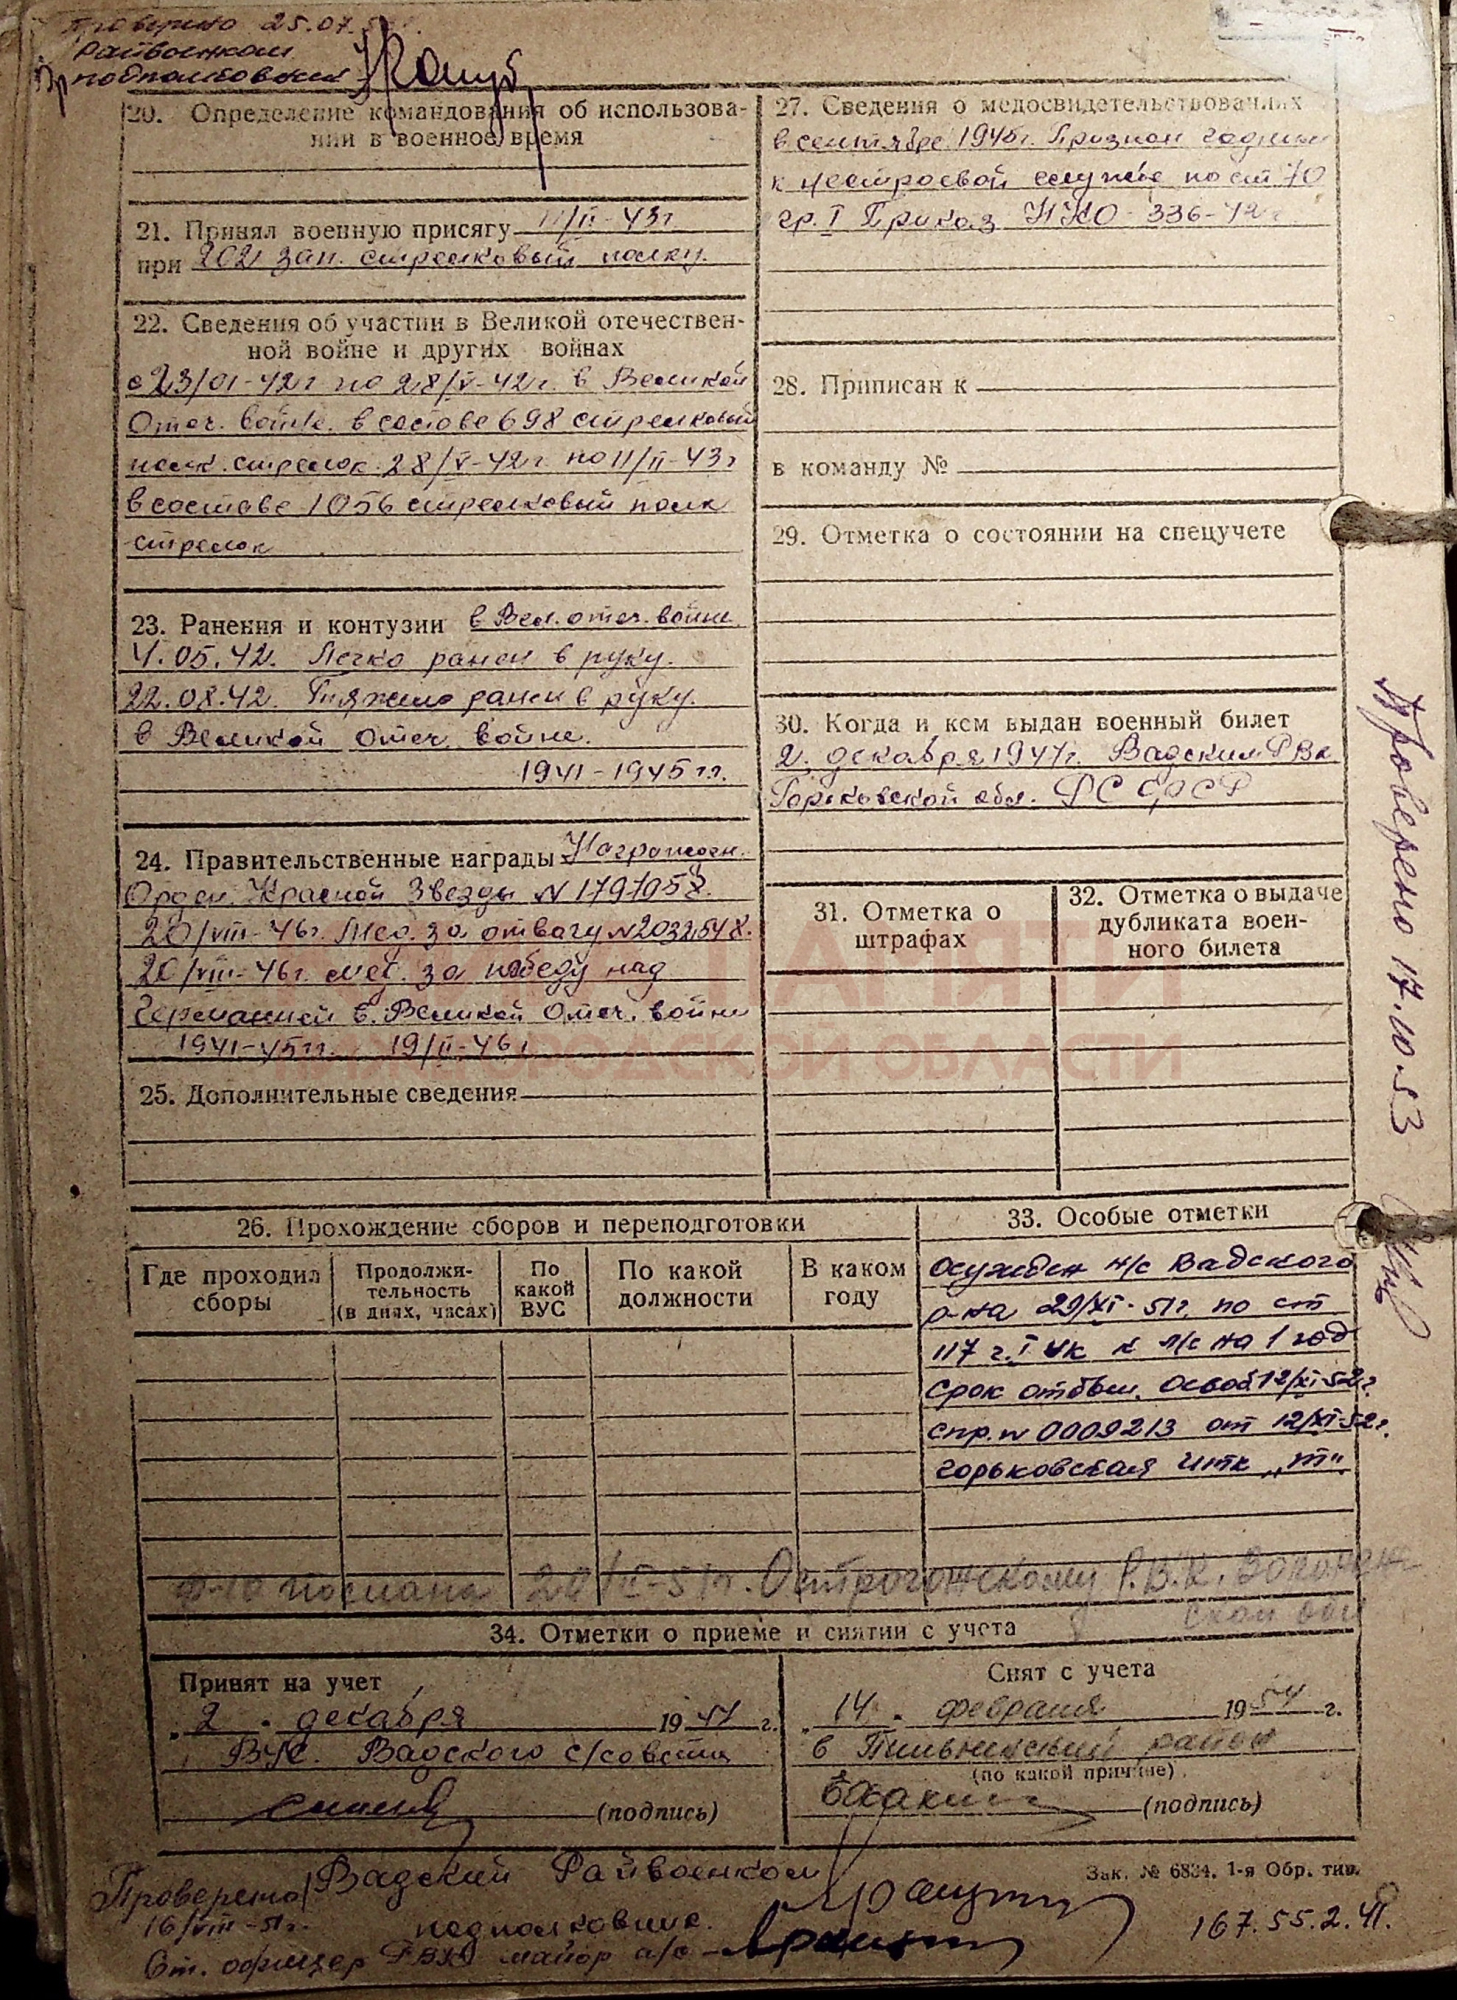 Проверено 25.07.5
Райвоенком
подполковник
20. Определение командования об использова-
нии в военное время
21. Принял военную присягу 11/II-43г
при 202 зап. стрелковый полку.
22. Сведения об участии в Великой отечествен-
ной войне и других войнах
с 23/01-42г по 28/V-42г. в Великой
Отеч. войне. в составе 698 стрелковый
полк. стрелок. 28/V-42г по 11/II-43г
в составе 1056 стрелковый полк
стрелок
23. Ранения и контузии в Вел. отеч. войне.
4.05.42. Легко ранен в руку.
22.08.42. Тяжело ранен в руку.
в Великой Отеч. войне.
1941-1945гг.
24. Правительственные награды Награжден.
Орден. Красной Звезды N 1797058.
20/VIII-46г. Мед. за отвагу N2032548.
20/VIII-46г. мед. за победу над
Германией в. Великой Отеч. войне
1941-45гг. 19/II-46г
25. Дополнительные сведения
27. Сведения о медосвидетельствованиях
в сентябре 1945г. Признан годным
к нестроевой службе по ст 70
гр. I Приказ НКО-336-42г.
28. Приписан к
в команду №
29. Отметка о состоянии на спецучете
30. Когда и кем выдан военный билет
2. декабря 1947г. Вадским РВк
Горьковской обл. РСФСР
31. Отметка о
штрафах
32. Отметка о выдаче
дубликата воен-
ного билета
ПАМЯТИ
НИЖЕГОРОДСКОЙ ОБЛАСТИ
Проверено 17.10.53
26. Прохождение сборов и переподготовки
Где проходил
сборы
Продолжи-
тельность
(в днях, часах)
По
какой
ВУС
По какой
должности
В каком
году
33. Особые отметки
Осужден н/с Вадского
р-на 29/XI-51г. по ст
117 г. I Ук к л/с на 1 год
срок отбыл. Освоб 12/XI 52г
спр. N 0009213 от 12/XI-52г.
горьковская итк „т"
ф-10 послана 20/II-51г. Острогожскому Р.В.К. Воронеж
ской обл
34. Отметки о приеме и снятии с учета
Принят на учет
„2" декабря 1947 г.
ВУС. Вадского с/совета
(подпись)
Снят с учета
„14" февраля 1954 г.
в Пильнинский район
(по какой причине)
(подпись)
Зак. № 6834. 1-я Обр. тип.
Проверено Вадский Райвоенком
16/VIII-51г. подполковник.
Ст. офицер РВК майор а/с
167.55.2.41.